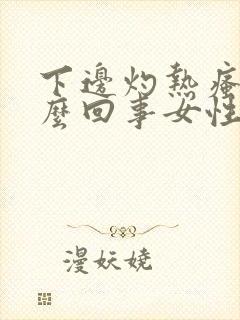 下邊灼熱瘙
麼回事女性
漫妖嬈